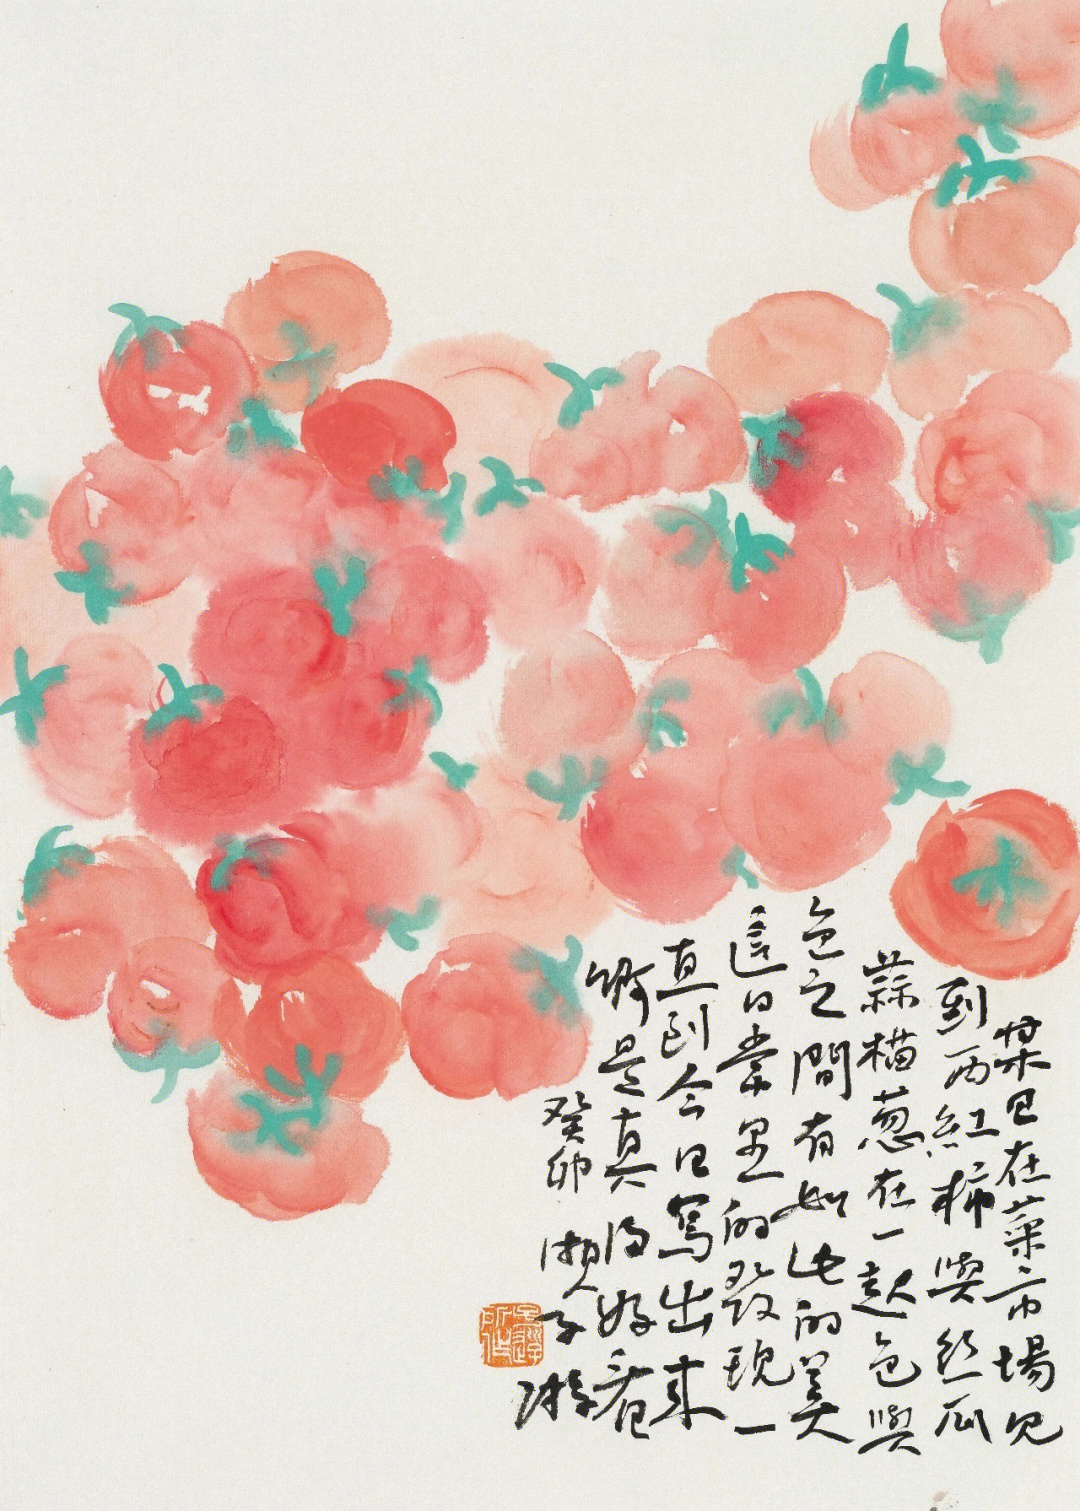 某日在菜市場見
到西紅柿與丝瓜
蒜葱在一起色與
色之間有如此的美
這日常里的發現一
直到今日寫出來
啊是真得好看
癸卯